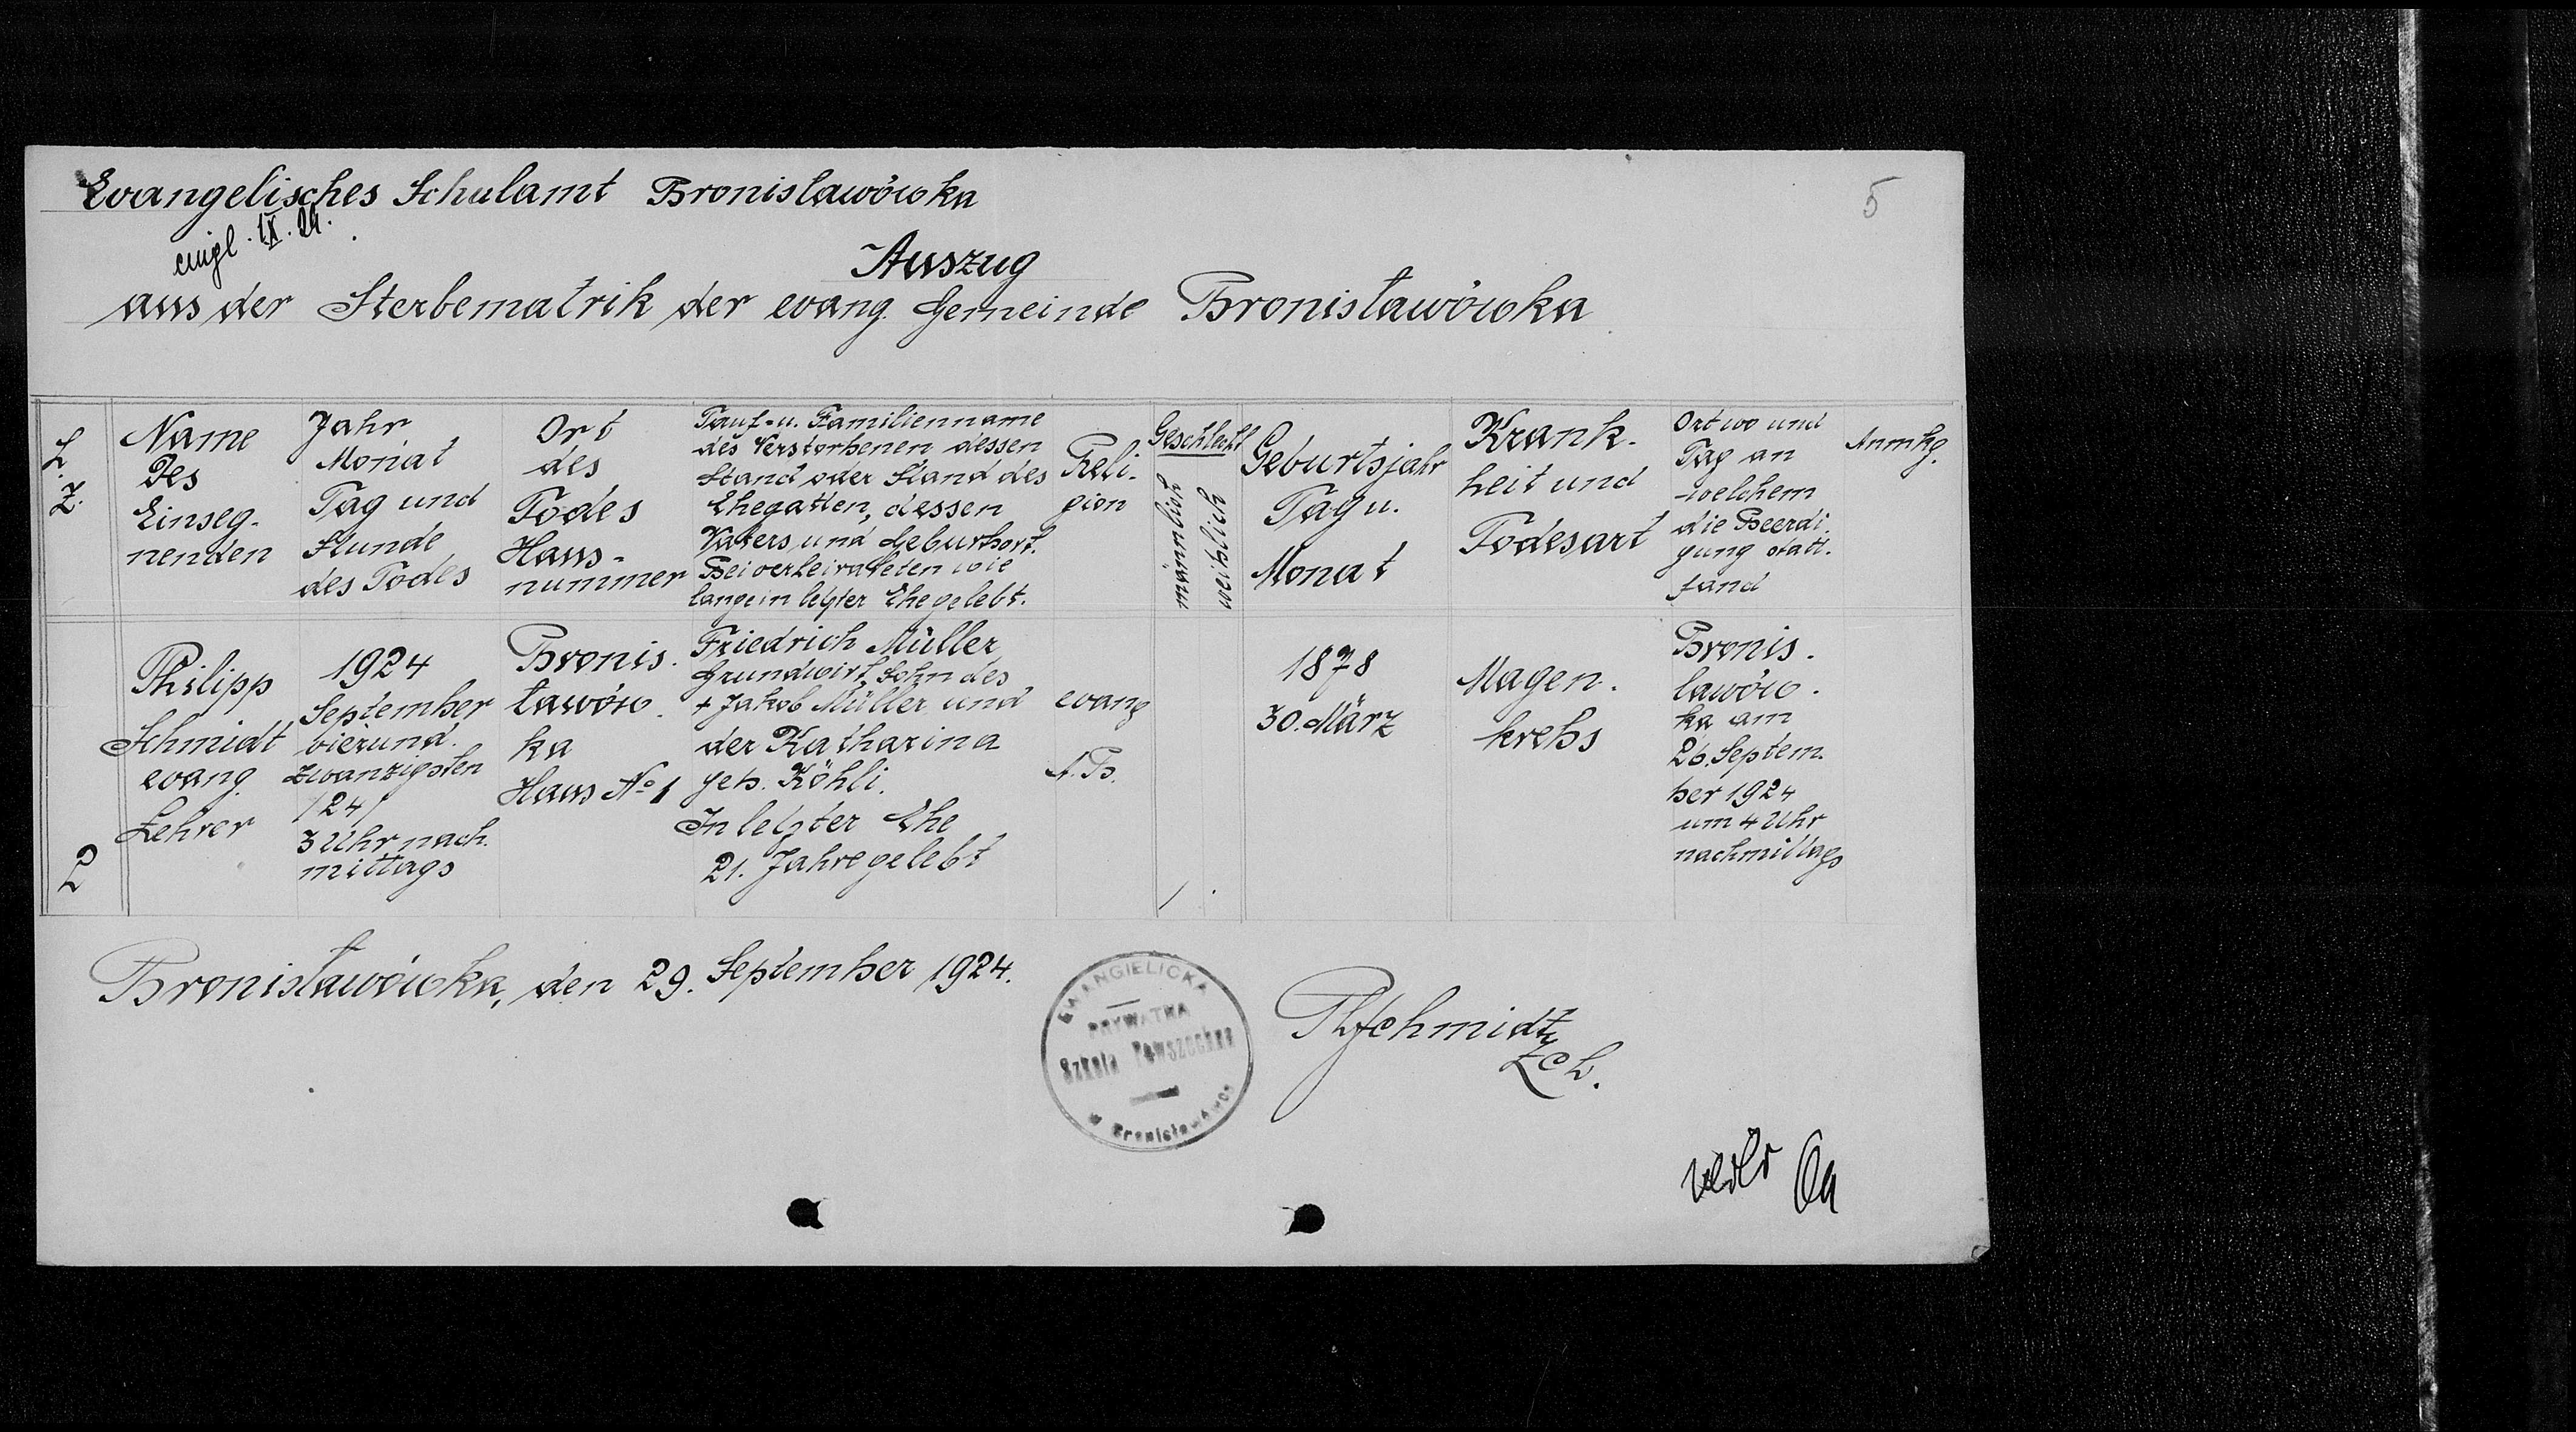 Evangelisches Schulamt Bronisławówka
5
eingl. IX. 24.
Auszug
aus der Sterbematrik der evang. Gemeinde Bronisławówka
L.
Z.
Name
Des
Einseg-
nenden
Jahr
Monat
Tag und
Stunde
des Todes
Ort
des
Todes
Haus-
nummer
Tauf- u. Familienname
des Verstorbenen dessen
Stand oder Stand des
Ehegatten, dessen
Vaters und Geburtsort.
Bei verheirateten wie
lange in letzter Ehe gelebt.
Reli-
gion
Geschlecht
männlich
weiblich
Geburtsjahr
Tag u.
Monat
Krank-
heit und
Todesart
Ort wo und
Tag an
welchem
die Beerdi-
gung statt-
fand
Anmkg.
2
Philipp
Schmidt
evang.
Lehrer
1924
September
vierund-
zwanzigsten
/24/
3 Uhr nach-
mittags
Bronis-
ławów-
ka
Haus No 1
Friedrich Müller
Grundwirt, Sohn des
+ Jakob Müller und
der Katharina
geb. Köhli.
In letzter Ehe
21. Jahre gelebt
evang
A. B.
/
1878
30. März
Magen-
krebs
Bronis-
lawów-
ka am
26. Septem-
ber 1924
um 4 Uhr
nachmittags
Bronisławówka, den 29. September 1924.
EWANGIELICKA
PRYWATNA
Szkoła Powszechna
PhSchmidt